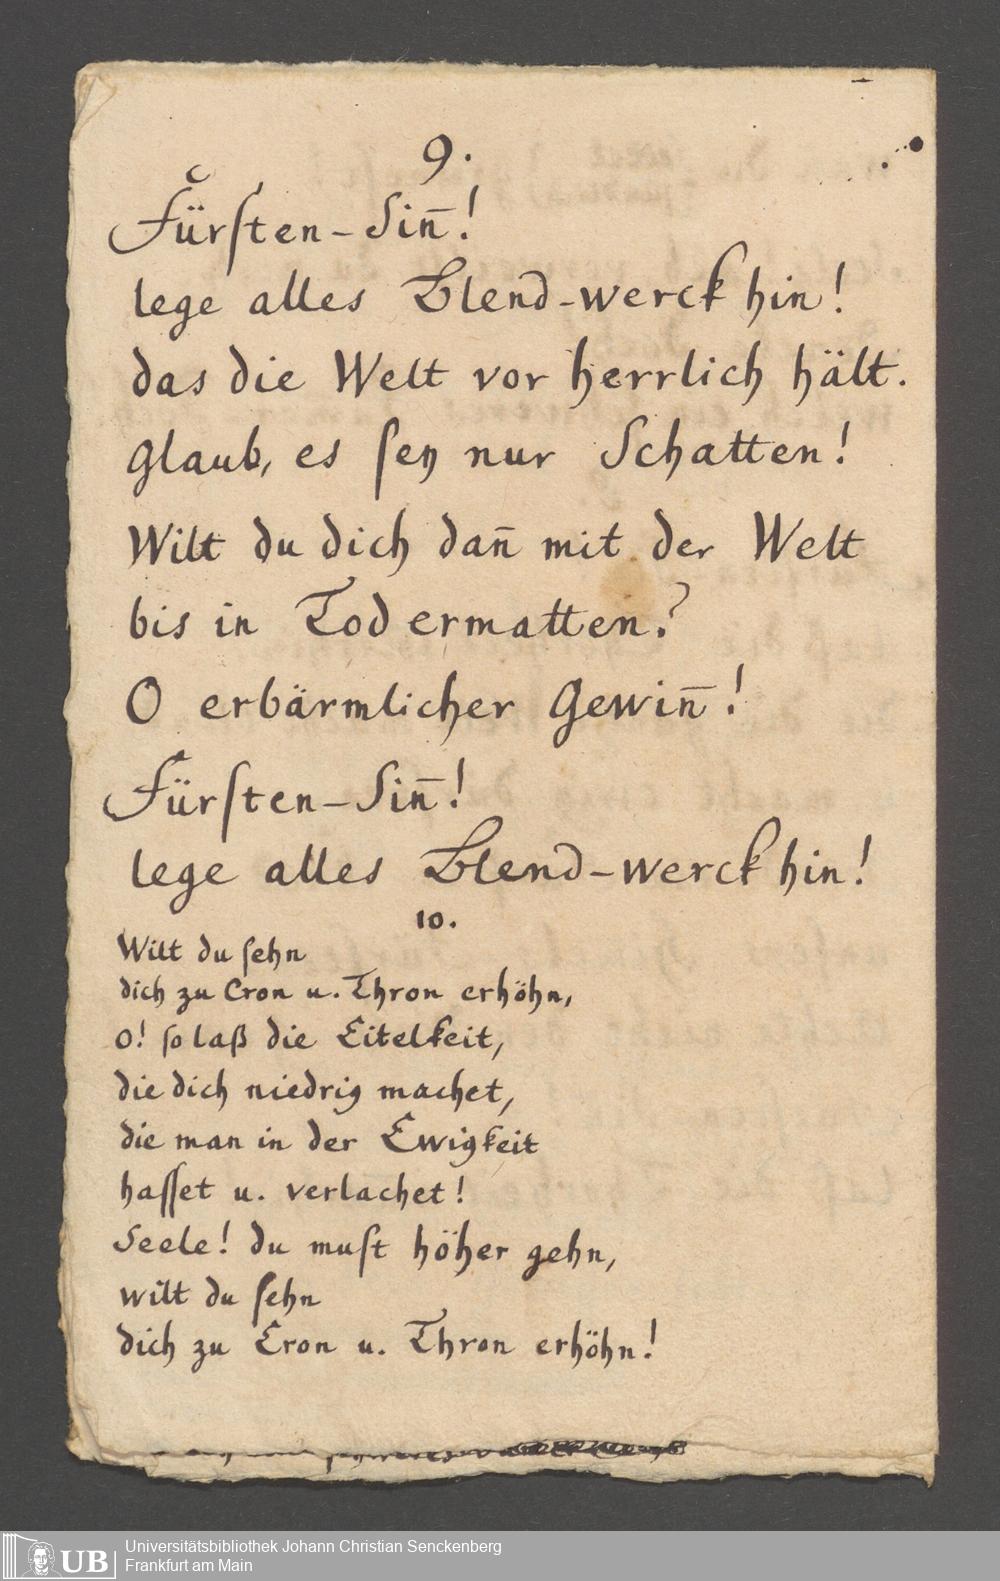 9.
Fürsten-Sin̄!
lege alles Blend-werck hin!
das die Welt vor herrlich hält.
Glaub, es sey nur Schatten!
Wilt du dich dan̄ mit der Welt
bis in Tod ermatten?
O erbärmlicher Gewin̄!
Fürsten-Sin̄!
lege alles Blend-werck hin!
10.
Wilt du sehn
dich zu Cron u. Thron erhöhn,
O! so laß die Eitelkeit,
die dich niedrig machet,
die man in der Ewigkeit
hasset u. verlachet!
Seele! du must höher gehn,
wilt du sehn
dich zu Cron u. Thron erhöhn!
UB Universitätsbibliothek Johann Christian Senckenberg
Frankfurt am Main